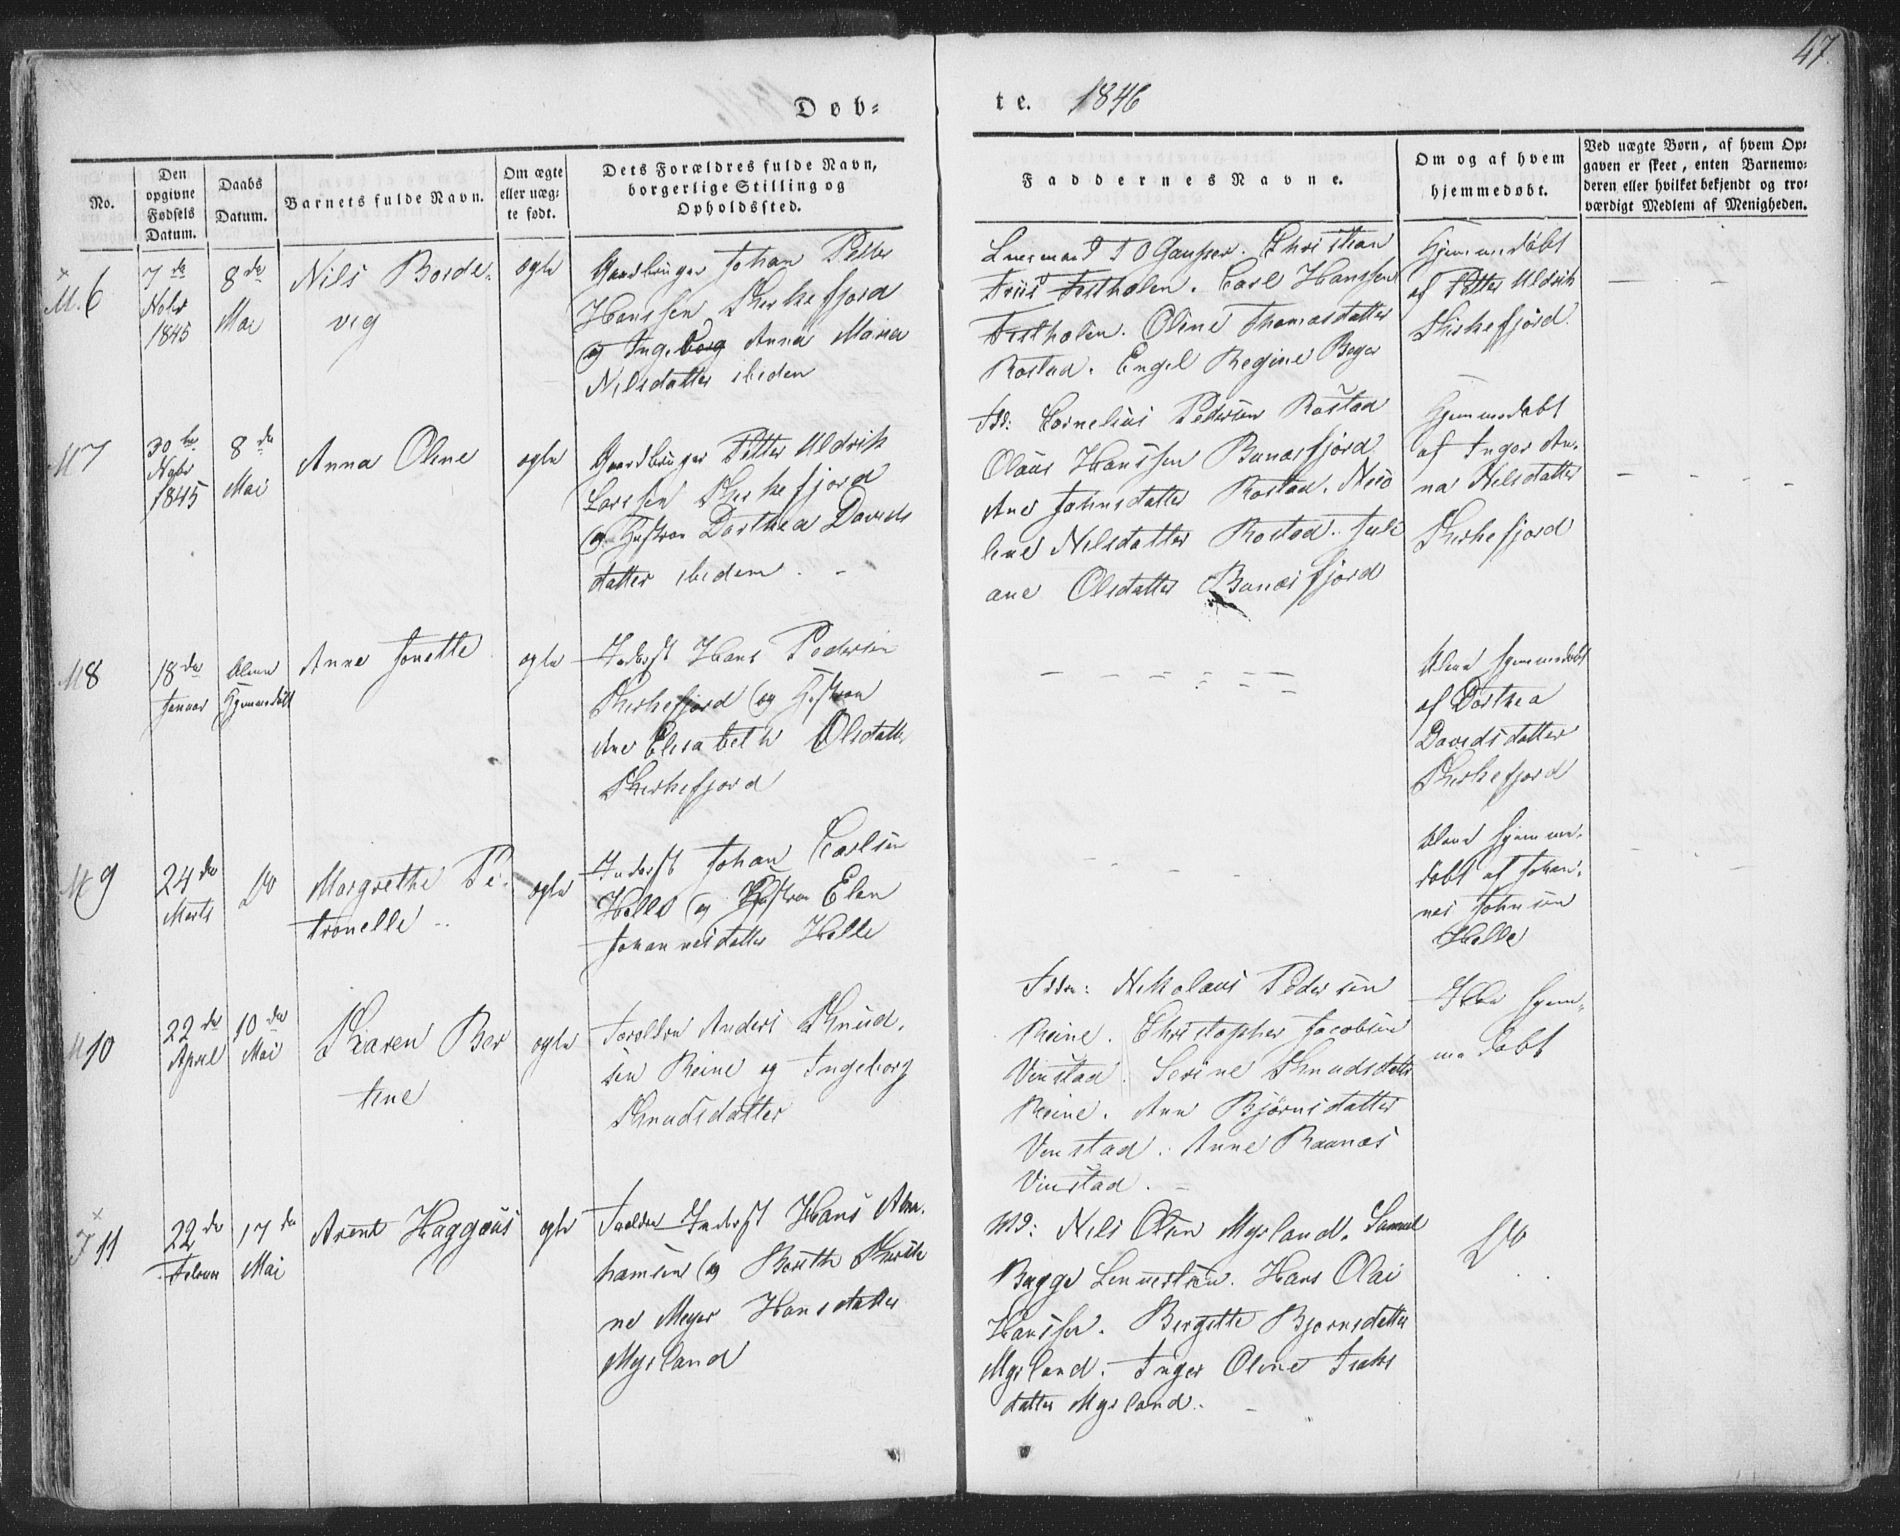 47.
Døb-
te. 1846
No.
Den
opgivne
Fødsels
Datum.
Daabs
Datum.
Barnets fulde Navn.
Om ægte
eller uæg-
te født.
Dets Forældres fulde Navn,
borgerlige Stilling og
Opholdssted.
Faddernes Navne.
Om og af hvem
hjemmedøbt.
Ved uægte Børn, af hvem Op-
gaven er skeet, enten Barnemo-
deren eller hvilket bekjendt og tro-
værdigt Medlem af Menigheden.
M. 6
7de
Nobr
1845
8de
Mai
Nils Borde-
vig
ægte
Gaardbruger Johan Petter
Hanssen Kirkefjord
og Ingeborg Anna Maria
Nilsdatter ibiden
Christian
Friis Festhølen. Carl Hanssen
Festhølen. Oline Thomasdatter
Rostad. Engel Regine
Hjemmedøbt
af Petter Uldrik
Kirkefjord.
M 7
30te
Nobr
1845
8de
Mai
Anna Oline
ægte
Gaardbruger Petter Uldrik
Larssen Kirkefjord
og Hustroe Dorthea Davids
datter ibidem.
Fdd: Cornelius Pedersen Rostad
Olaus Hanssen Bunæsfjord
Ane Johnsdatter Rostad. Nico
line Nilsdatter Rostad. Juli
ane Olsdatter Bunæsfjord
Hjemmedøbt
af Inger An-
na Nilsdatter
Kirkefjord
M 8
18de
Januar
blevn
Hjemmedøbt
Anne Jonette
ægte
Inderst Hans Pedersen
Kirkefjord og Hustroe
Ane Elisabeth Olsdatter
Kirkefjord
hjemmedøbt
af Dorthea
Davidsdatter
Kirkefjord
M 9
24de
Marts
Do
Margrethe Pe-
tronelle
ægte
Inderst Johan Carlsen
Helle og Hustroe Elen
Johannesdatter Helle
hjemme-
døbt af Johan-
nes Johnsen
Helle
M 10
22de
April
10de
Mai
Karen Ber
tine
ægte
Forældre Anders Knud-
sen Reine og Ingeborg
Knudsdatter
Fddre: Nikolaus Pedersen
Reine. Christopher Jacobsen
Vinstad. Serine Knudsdatter
Reine. Ane Bjørnsdatter
Vinstad. Anne
Vinstad.
Ikke hjem-
medøbt
F 11
22de
Februar
17de
Mai
Arent Haggæus
ægte
Forældre Inderst Hans Abra-
hamsen og Berethe
ne Meyer Hansdatter
Myrland
Fdd: Nils Olsen Myrland. Samuel
Bugge Hans Olai
Hanssen. Bergette Bjørnsdatter
Myrland. Inger Oline Isaks
datter Myrland.
Do